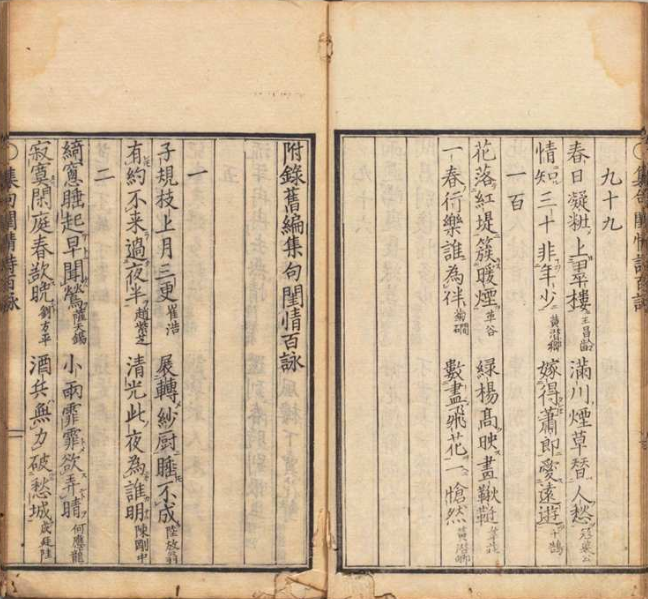 九十九
春日凝粧上翠樓 王昌齡 滿川煙草替人愁 寇萊公
情知三十非年少 黃潛卿 嫁得蕭郎愛遠遊 于鵠
一百
花落紅堤簇暖煙 韋谷 綠楊高映畫鞦韆 韋莊
一春行樂誰為伴 菊磵 數盡飛花一愴然 黃潛卿
附錄舊編集句閨情百詠
一
子規枝上月三更 崔浩 展轉紗厨睡不成 陸放翁
有約不来過夜半 趙紫芝 清光此夜為誰明 陳剛中
二
綺窻睡起早聞鶯 薩天錫 小雨霏霏欲弄晴 何應龍
寂寞閑庭春欲晩 劉方平 酒兵無力破愁城
集句閨情詩百詠